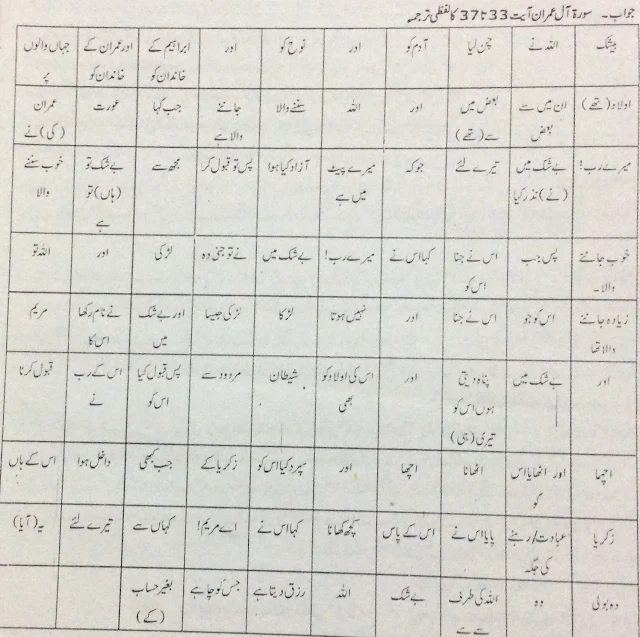 جواب۔ سورۃ آل عمران آیت 33 تا 37 کا لفظی ترجمہ
بیشک | اللہ نے | چن لیا | آدم کو | اور | نوح کو | اور | ابراہیم کے خاندان کو | اور عمران کے خاندان کو | جہاں والوں پر
اولاد (تھے) | ان میں سے بعض | بعض میں سے (تھے) | اور | اللہ | سننے والا | جاننے والا ہے | جب کہا | عورت | عمران (کی) نے
میرے رب! | بے شک میں (نے) نذر کیا | تیرے لئے | جو کہ | میرے پیٹ میں ہے | آزاد کیا ہوا | پس تو قبول کر | مجھ سے | بے شک تو (ہاں) تو ہے | خوب سننے والا
خوب جاننے والا۔ | پس جب | اس نے جنا اس کو | کہا اس نے | میرے رب! | بے شک میں | نے تو جنی وہ | لڑکی | اور | اللہ تو
زیادہ جاننے والا تھا | اس کو جو | اس نے جنا | اور | نہیں ہوتا | لڑکا | لڑکی جیسا | اور بے شک میں | نے نام رکھا اس کا | مریم
اور | بے شک میں | پناہ دیتی ہوں اس کو تیری (ہی) | اور | اس کی اولاد کو بھی | شیطان | مردود سے | پس قبول کیا اس کو | اس کے رب نے | قبول کرنا
اچھا | اور اٹھایا اس کو | اٹھانا | اچھا | اور | سپرد کیا اس کو | زکریا کے | جب کبھی | داخل ہوا | اس کے ہاں
زکریا | عبادت/رہنے کی جگہ | پایا اس نے | اس کے پاس | کچھ کھانا | کہا اس نے | اے مریم! | کہاں سے | تیرے لئے | یہ (آیا)
وہ بولی | وہ | اللہ کی طرف سے ہے | بے شک | اللہ | رزق دیتا ہے | جس کو چاہے | بغیر حساب (کے)